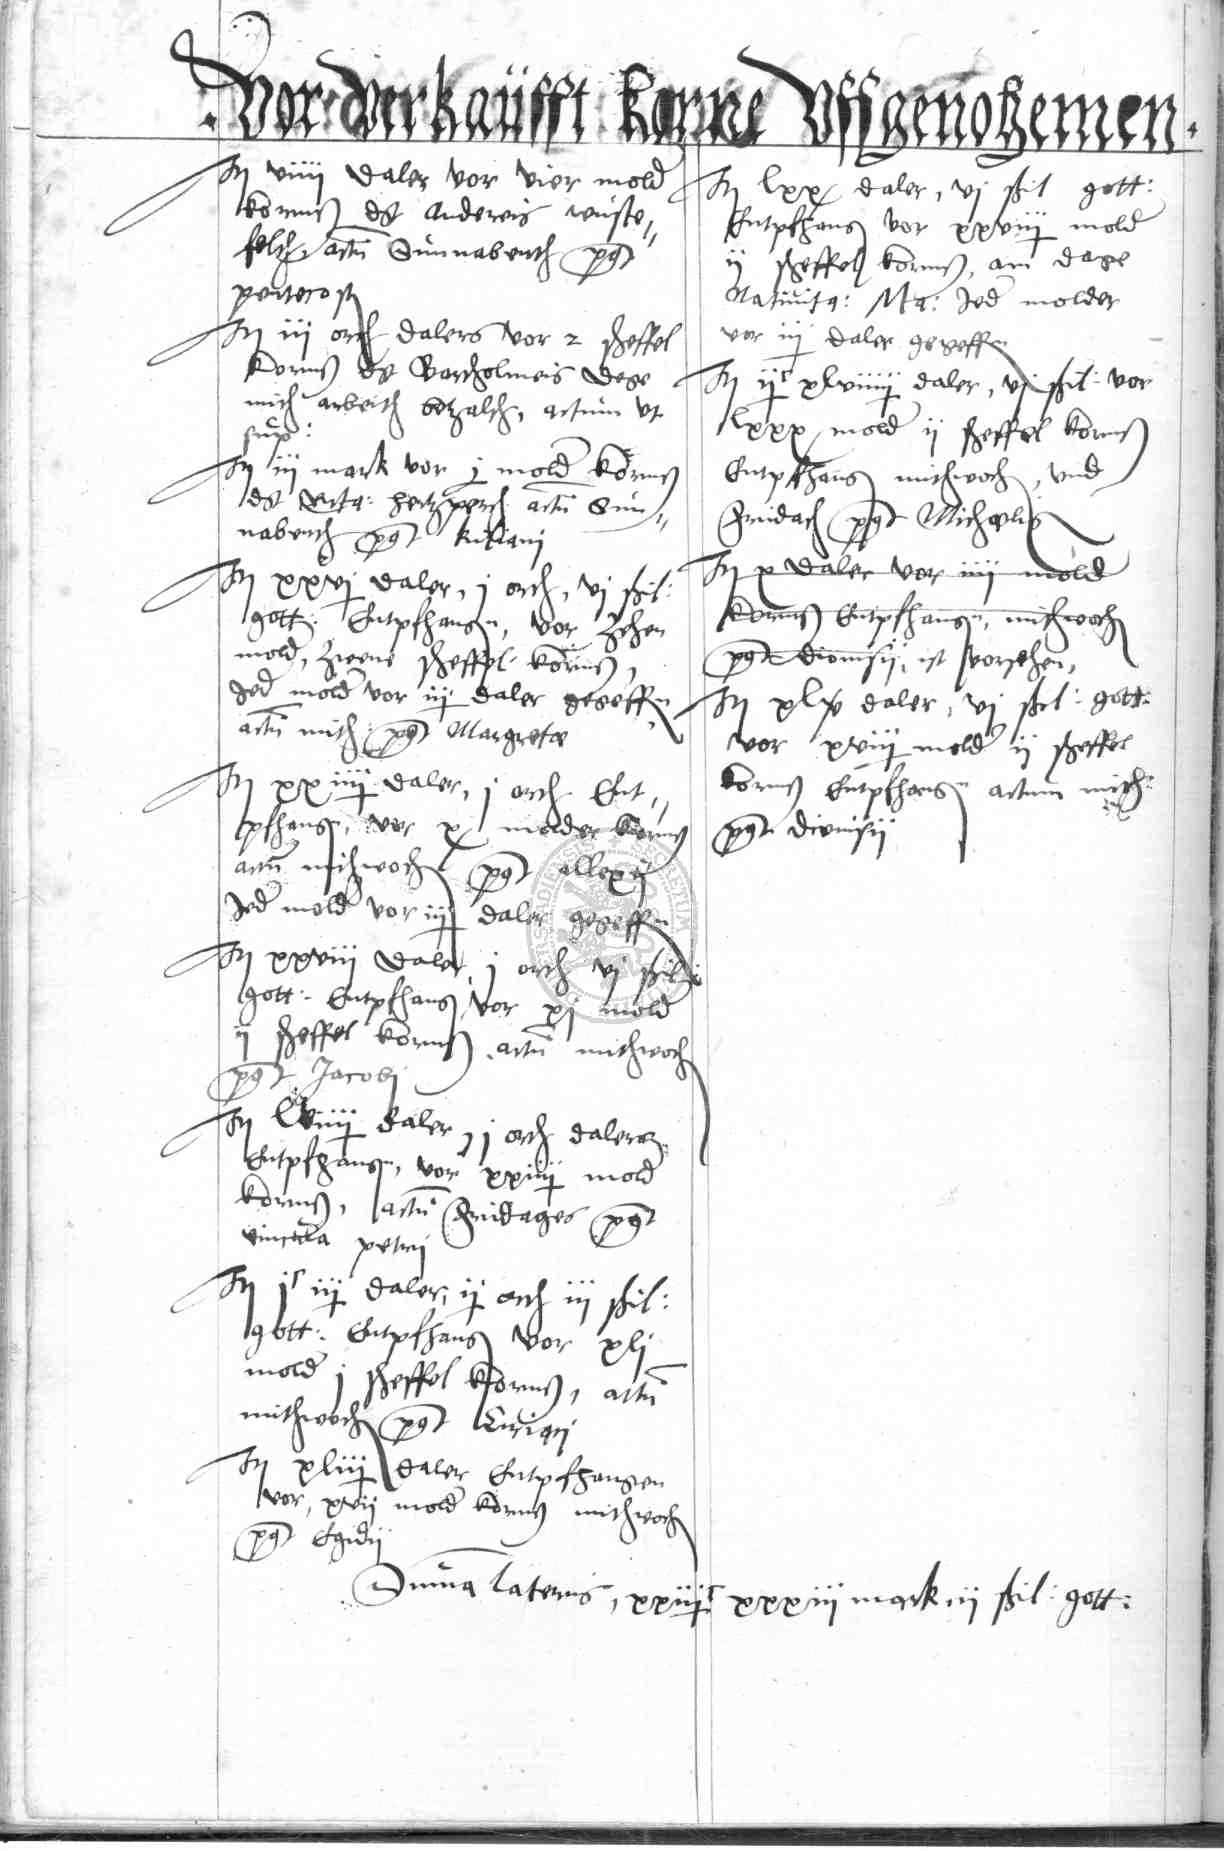 Vor Verkaüfft korne Uffgenohemen.
It viiij daler vor vier mold
korns dt Andereis wüste„
feld actum Sunnabents post
pentecost
It iij orth dalers vor 2 scheffel
korns dt Bartholmeis dege
mith arbeith bezalth, actum ut
sup:
It iij mark vor j mold korns
dt actum Sun„
nabents post kiliani
It xxvj daler, j orth, vj schil:
gott: Entpfhangen, vor zehen
mold, zwene scheffel korns,
Jed mold vor iij daler gegeffen
actum mith post Margrete
It xxiiij daler, j orth Ent„
pfhangen, vor x molder korns
actum mithwoch post allexij
Jed mold vor iij daler gegeffen
It xxviij daler j orth vj schil:
gott: Entpfhang vor xj mold
ij scheffel korns actum mithwoch
post Jacobi
It lviiij daler, j orth dalers
Entpfhangen, vor xxiiij mold
korns, actum fridages post
vincula petri
It jc iij daler, ij orth iij schil:
gott: Entpfhang vor xlj
mold j scheffel korns, actum
mithwoch post Ciriaci
It xliij daler Entpfhangen
vor, xvij mold korns mithwoch
post Egidij
It lxx daler, vj schil gott:
Entpfhang vor xxviij mold
ij scheffel korns, am dage
Nativita: Ma: Jed molder
vor iij daler gegeffen
It ijc daler, vj schil: vor
lxxx mold ij scheffel korns
Entpfhang mithwoch, und
fridach post Michaelis
It x daler vor iiij mold
korns Entpfhangen, mithwoch
post dionisij, ist vorsehen,
It xlv daler, vj schil: gott:
vor xviij mold ij scheffel
korns Entpfhang actum mith:
post dionisij
Summa lateris, xxxiij mark iij schil: gott: